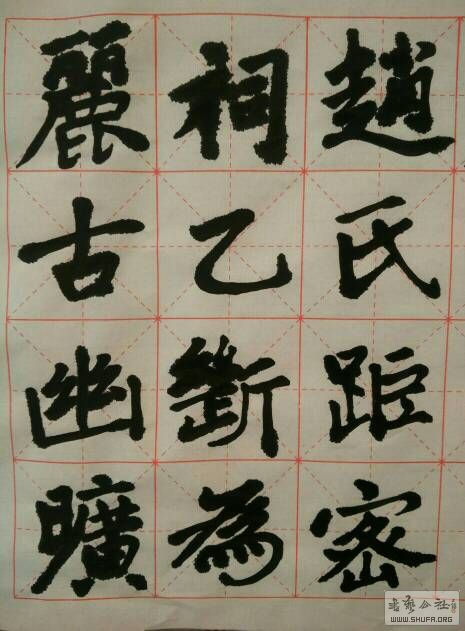 趙氏距密
祠乙斷為
麗古幽曠
书艺公社
WWW.SHUFA.ORG